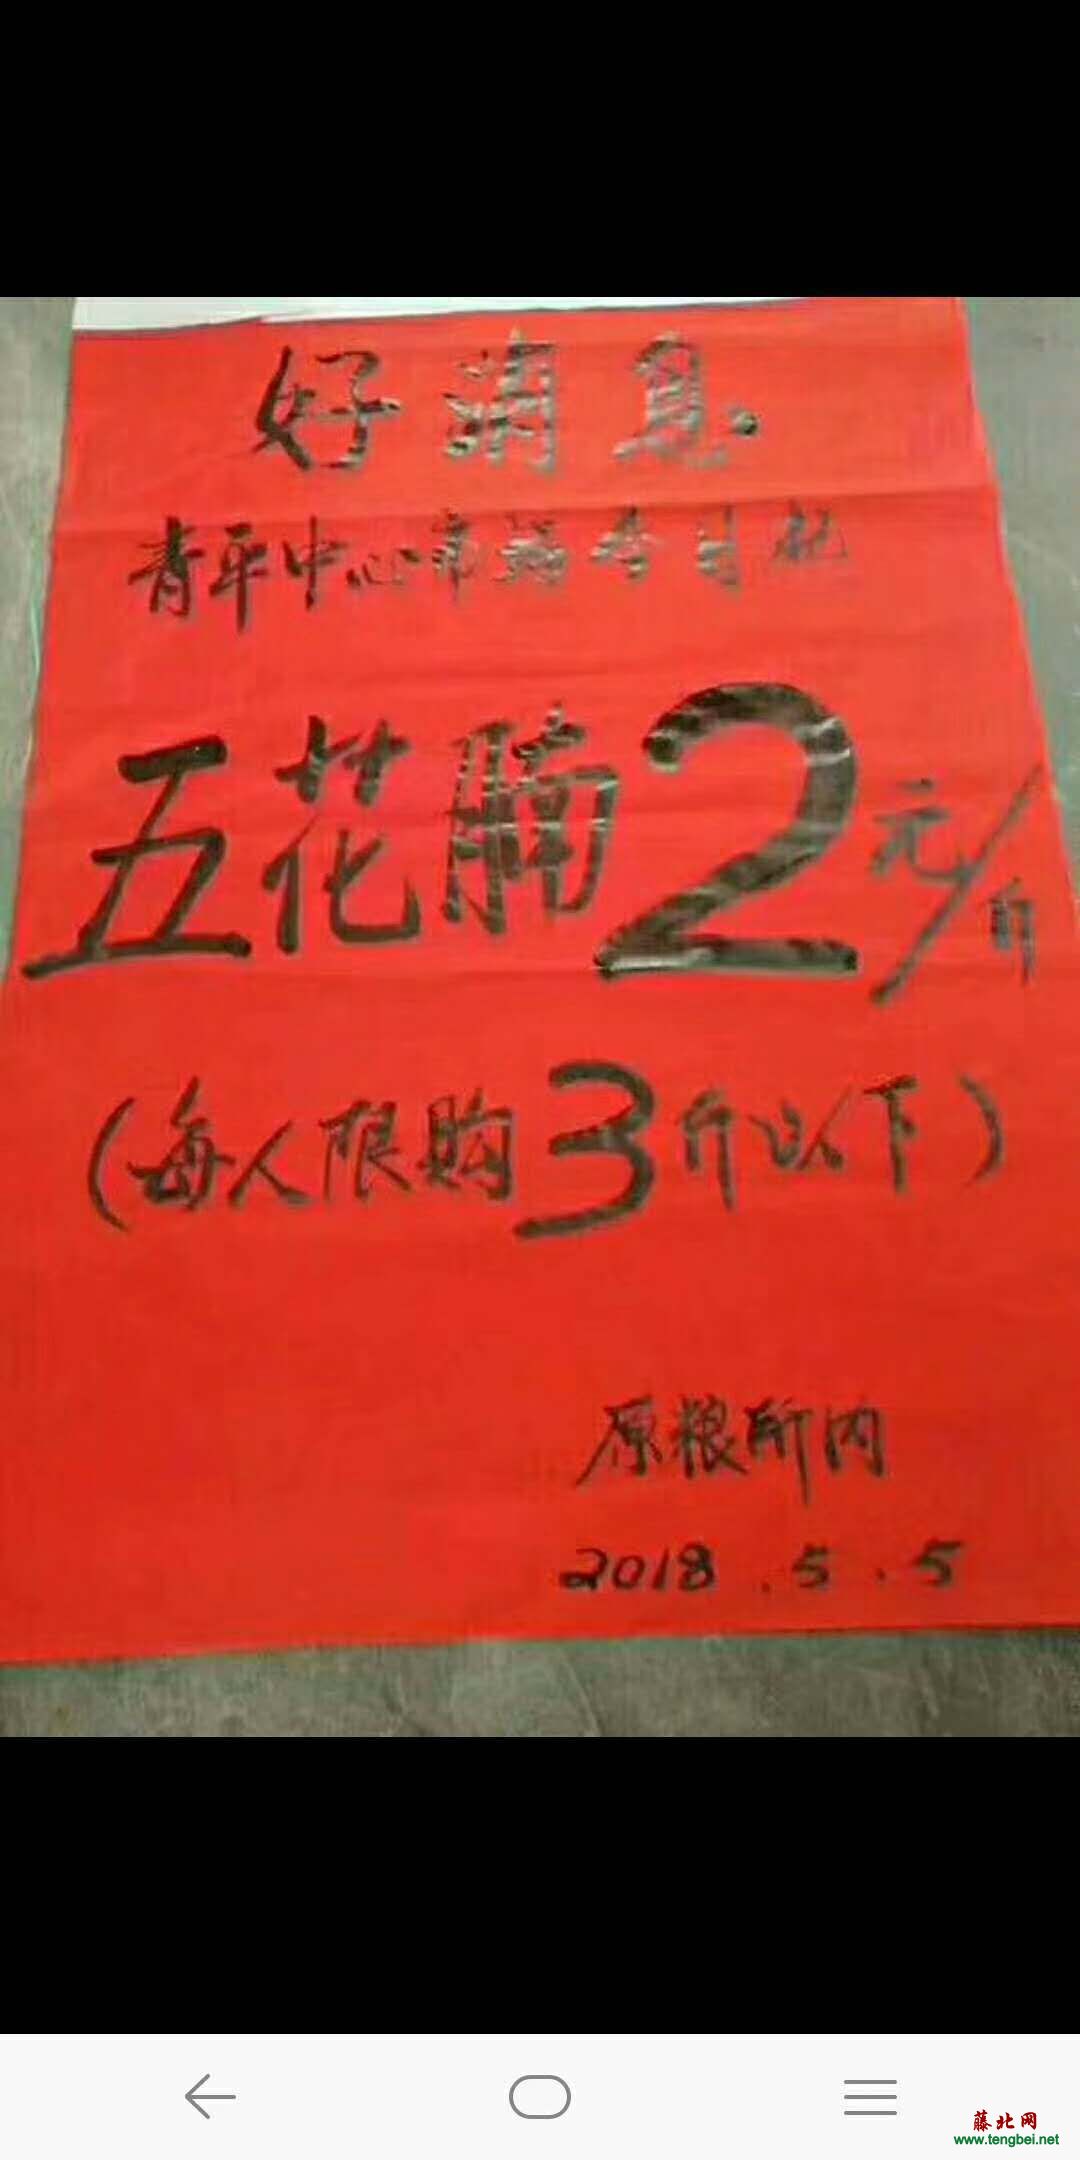 好消息
青平中心市场今日起
五花腩2元/斤
(每人限购3斤以下)
原粮所内
2018.5.5
藤北网
www.tengbei.net